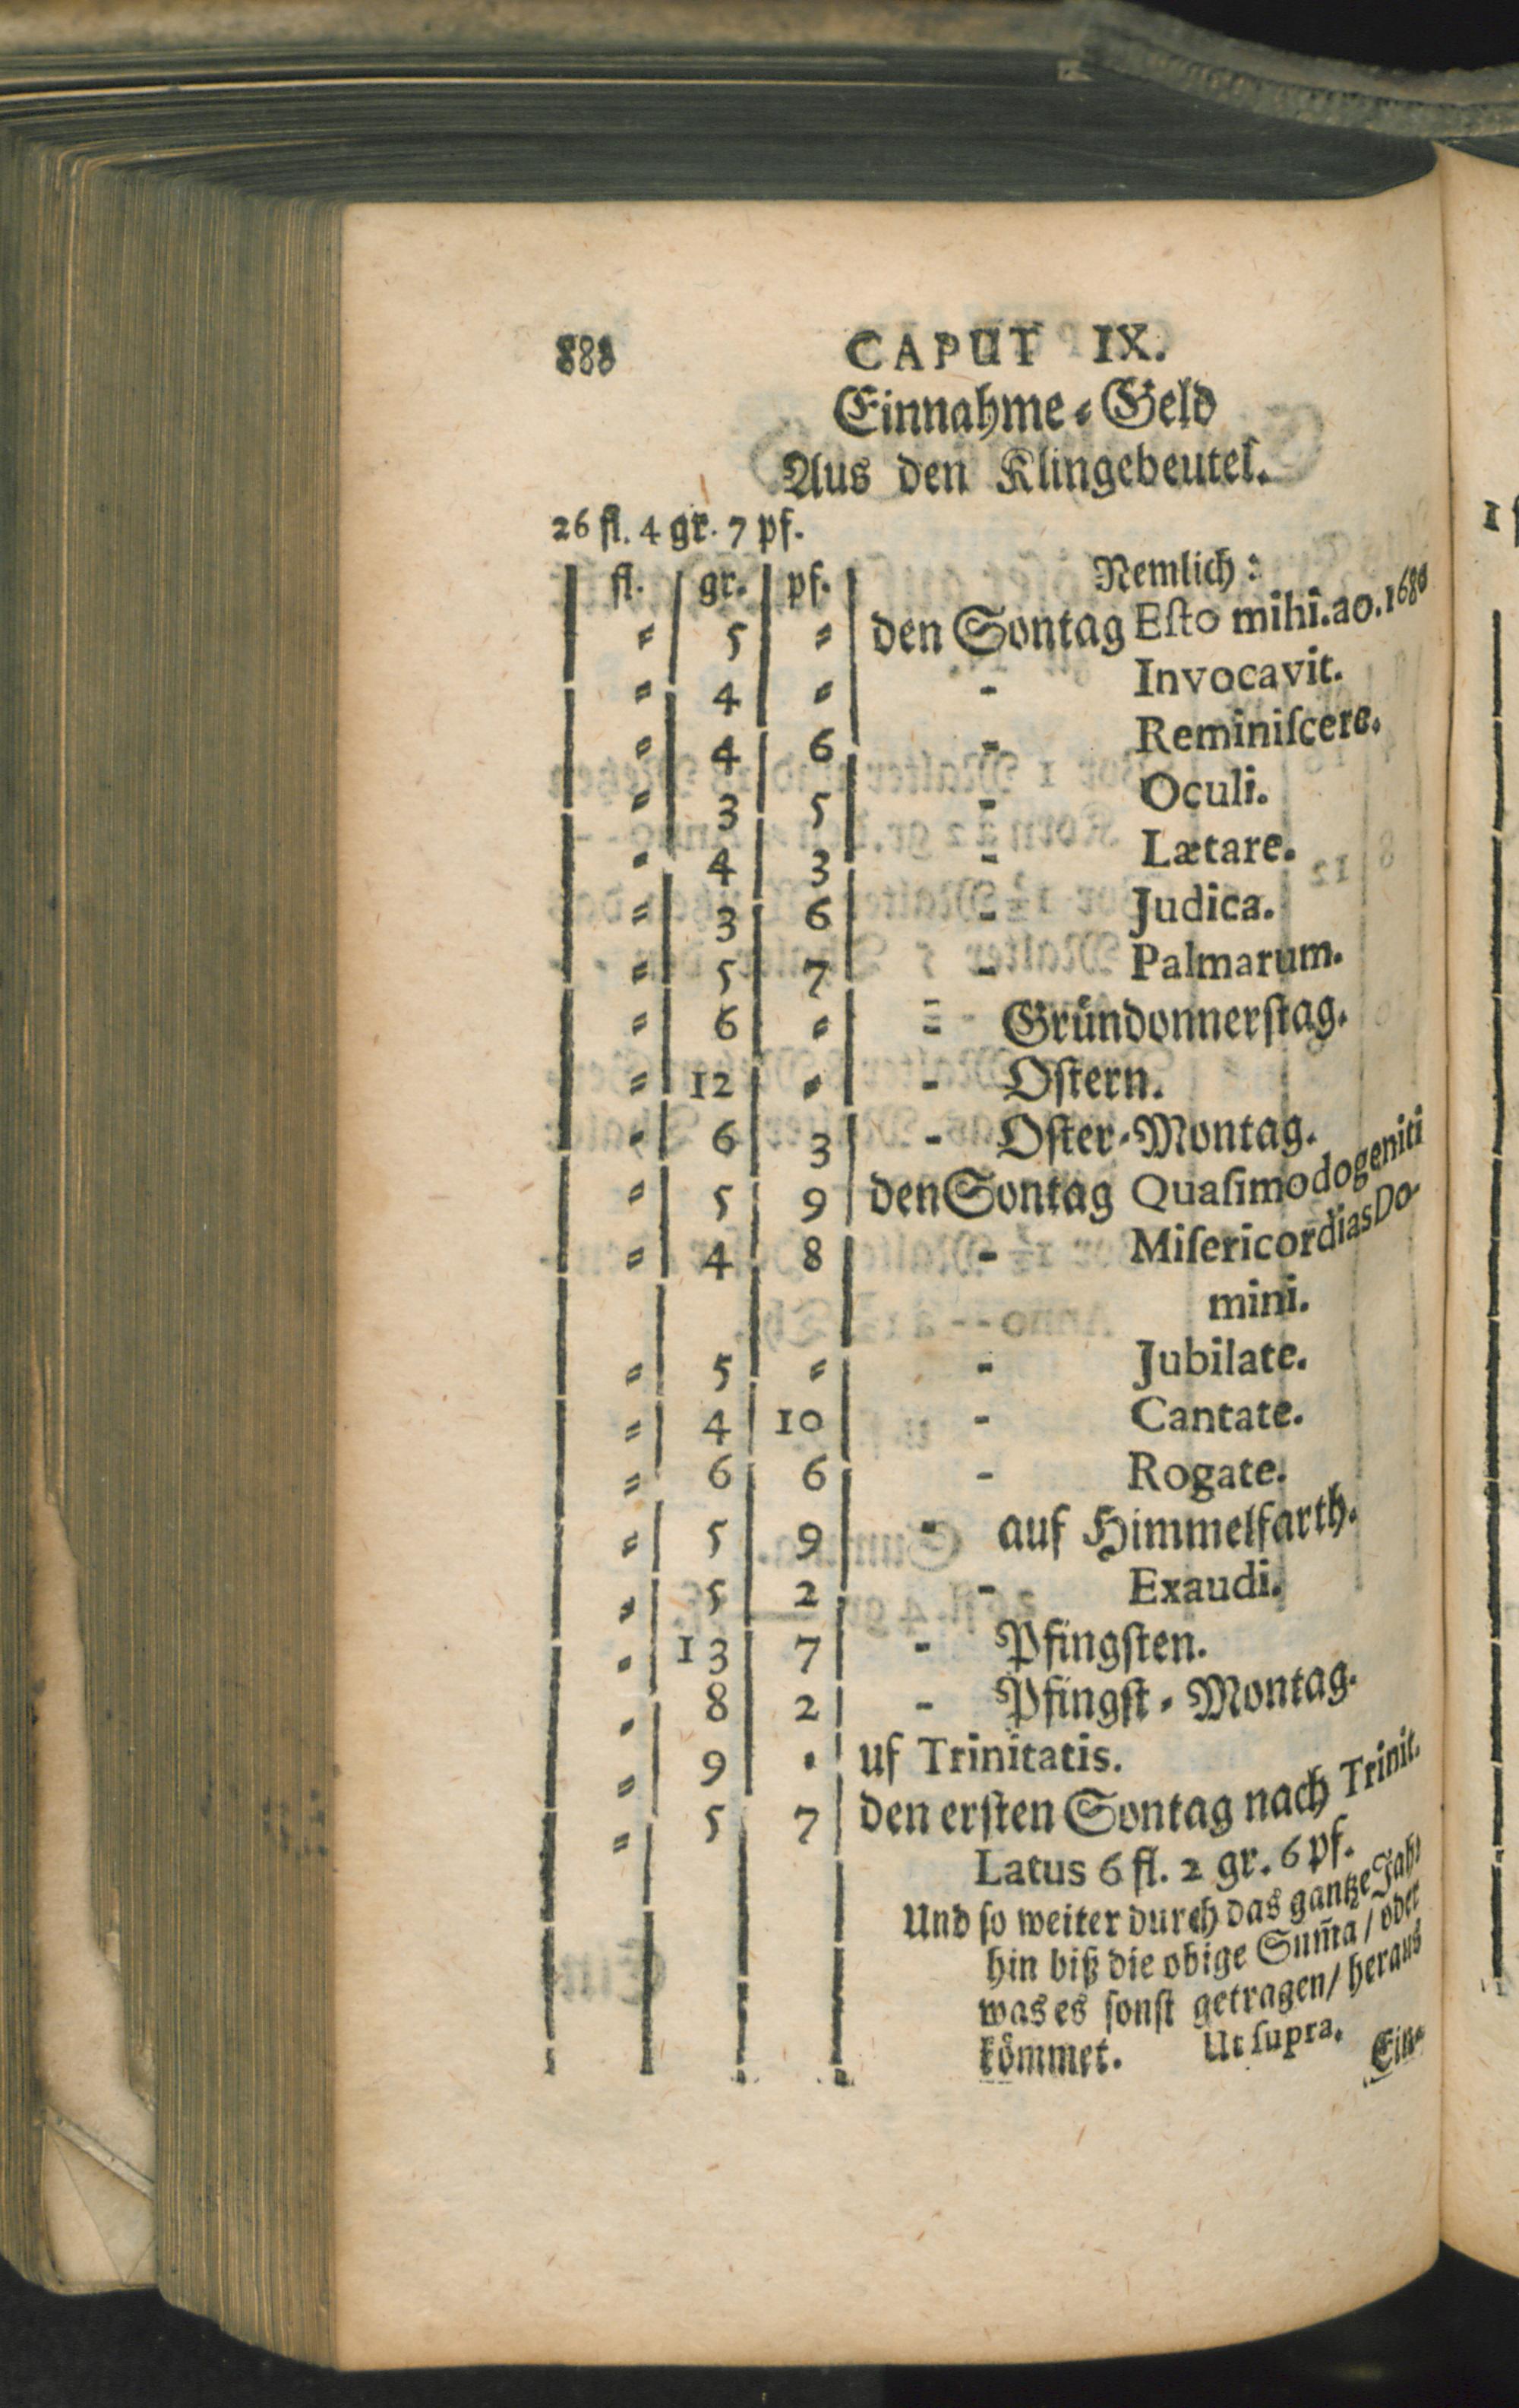 888 CAPUT IX.
Einnahme⸗Geld
Aus den Klingebeutel.
26 fl. 4 gr. 7 pf.
fl. gr. pf. Nemlich:
⸗ 5 ⸗ den Sontag Eſto mihi. ao. 1680
⸗ 4 ⸗ - Invocavit.
⸗ 4 6 - Reminiſcere.
⸗ 3 5 - Oculi.
⸗ 4 3 - Lætare.
⸗ 3 6 - Judica.
⸗ 5 7 - Palmarum.
⸗ 6 ⸗ - Gründonnerſtag.
⸗ 12 ⸗ - Oſtern.
⸗ 6 3 - Oſter⸗Montag.
⸗ 5 9 den Sontag Quaſimodogeniti
⸗ 4 8 - Miſericordias Do-
mini.
⸗ 5 ⸗ - Jubilate.
⸗ 4 10 - Cantate.
⸗ 6 6 - Rogate.
⸗ 5 9 - auf Himmelfarth.
⸗ 5 2 - Exaudi.
⸗ 13 7 - Pfingſten.
⸗ 8 2 - Pfingſt⸗Montag.
⸗ 9 ⸗ uf Trinitatis.
⸗ 5 7 den erſten Sontag nach Trinit.
Latus 6 fl. 2 gr. 6 pf.
Und ſo weiter durch das gantze Jahr
hin biß die obige Sum̃a / oder
was es ſonſt getragen / heraus
kömmet. Ut ſupra.
Ein⸗